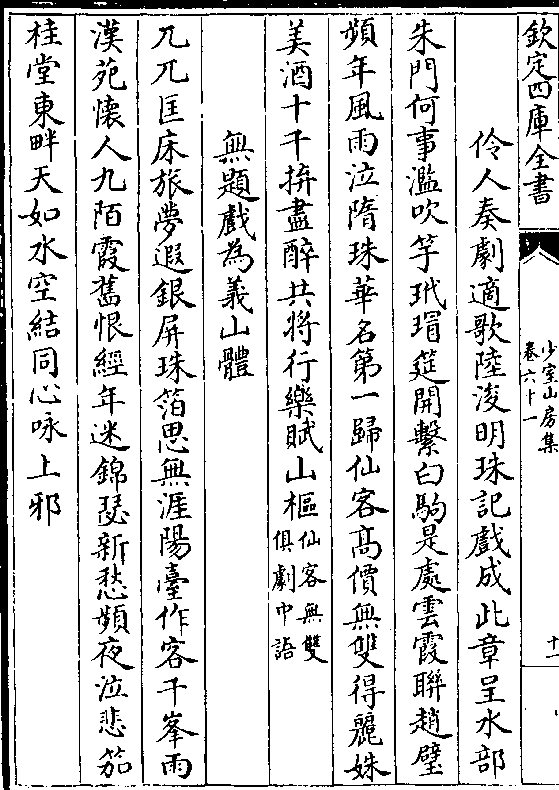 欽定四庫全書
少室山房集
卷六十一
十一
伶人奏劇適歌陸浚明珠記戲成此章呈水部
朱門何事濫吹竽玳瑁筵開繫白駒是處雲霞聯趙璧
頻年風雨泣隋珠華名第一歸仙客髙價無雙得麗姝
美酒十千拚盡醉共將行樂賦山樞仙客無雙
俱劇中語
無題戲為義山體
兀兀匡床旅夢遐銀屏珠箔思無涯陽臺作客千峯雨
漢苑懐人九陌霞舊恨經年迷錦瑟新愁頻夜泣悲笳
桂堂東畔天如水空結同心咏上邪